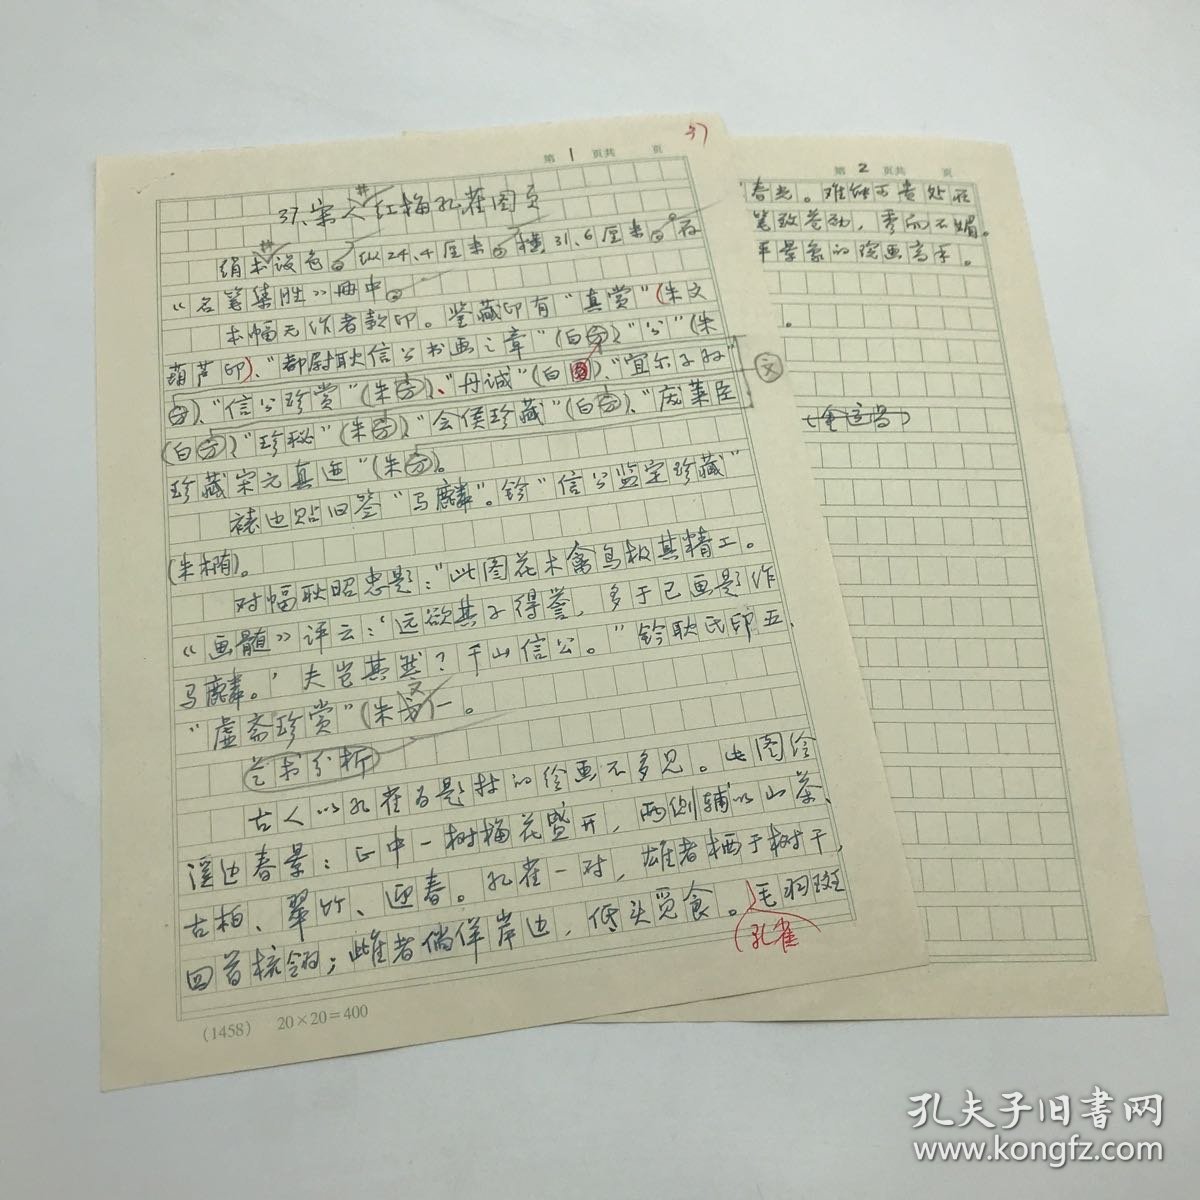 37
第 1 页共 页
37、宋人红梅孔雀图页
绢本设色。纵24.4厘米。横31.6厘米。存
《名笔集胜》册中。
本幅无作者款印。鉴藏印有“真赏”(朱文
葫芦印)、“都尉耿信公书画之章”(白方)、“公”(朱
方)、“信公珍赏”(朱方)、“丹诚”(白方)、“宜尔子孙”
(白方)、“珍秘”(朱方)、“会侯珍藏”(白方)、“庞莱臣
珍藏宋元真迹”(朱方)。
文
裱边贴旧签“马麟”。钤“信公监定珍藏”
(朱椭)。
对幅耿昭忠题：“此图花木禽鸟极其精工。
《画髓》评云：‘远欲其子得誉，多于己画题作
马麟。’夫岂其然？千山信公。”钤耿氏印五、
“虚斋珍赏”(朱文)一。
艺术分析
古人以孔雀为题材的绘画不多见。此图绘
溪边春景：正中一树梅花盛开，两侧辅以山茶、
古柏、翠竹、迎春。孔雀一对，雄者栖于树干，
回首梳翎；雌者徜徉岸边，低头觅食。毛羽斑
(孔雀
(1458) 20×20=400
第 2 页共 页
春光。难能可贵处在
笔致苍劲，秀而不媚。
平景象的院画高手。
。
(金运昌)
孔夫子旧书网
www.kongfz.com